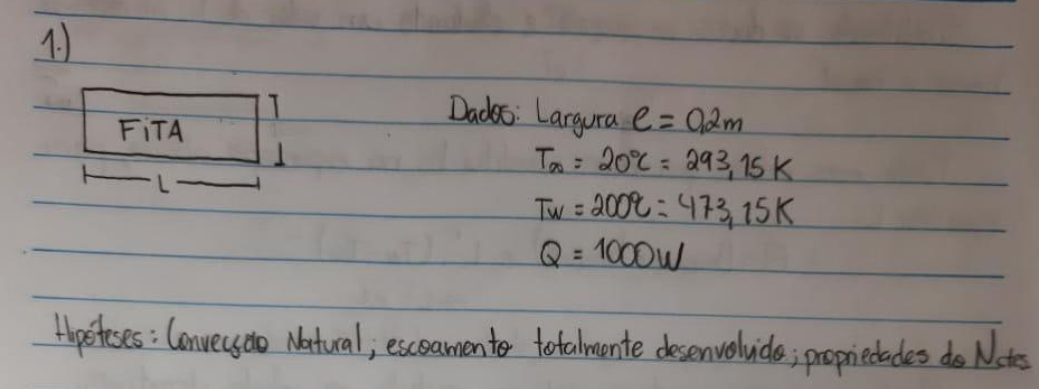 1.)
FiTA
L
Dados: Largura e = 0,2m
T∞ = 20°C = 293,15 K
Tw = 200°C = 473,15K
Q = 1000W
Hipóteses: Convecção Natural; escoamento totalmente desenvolvido; propriedades do